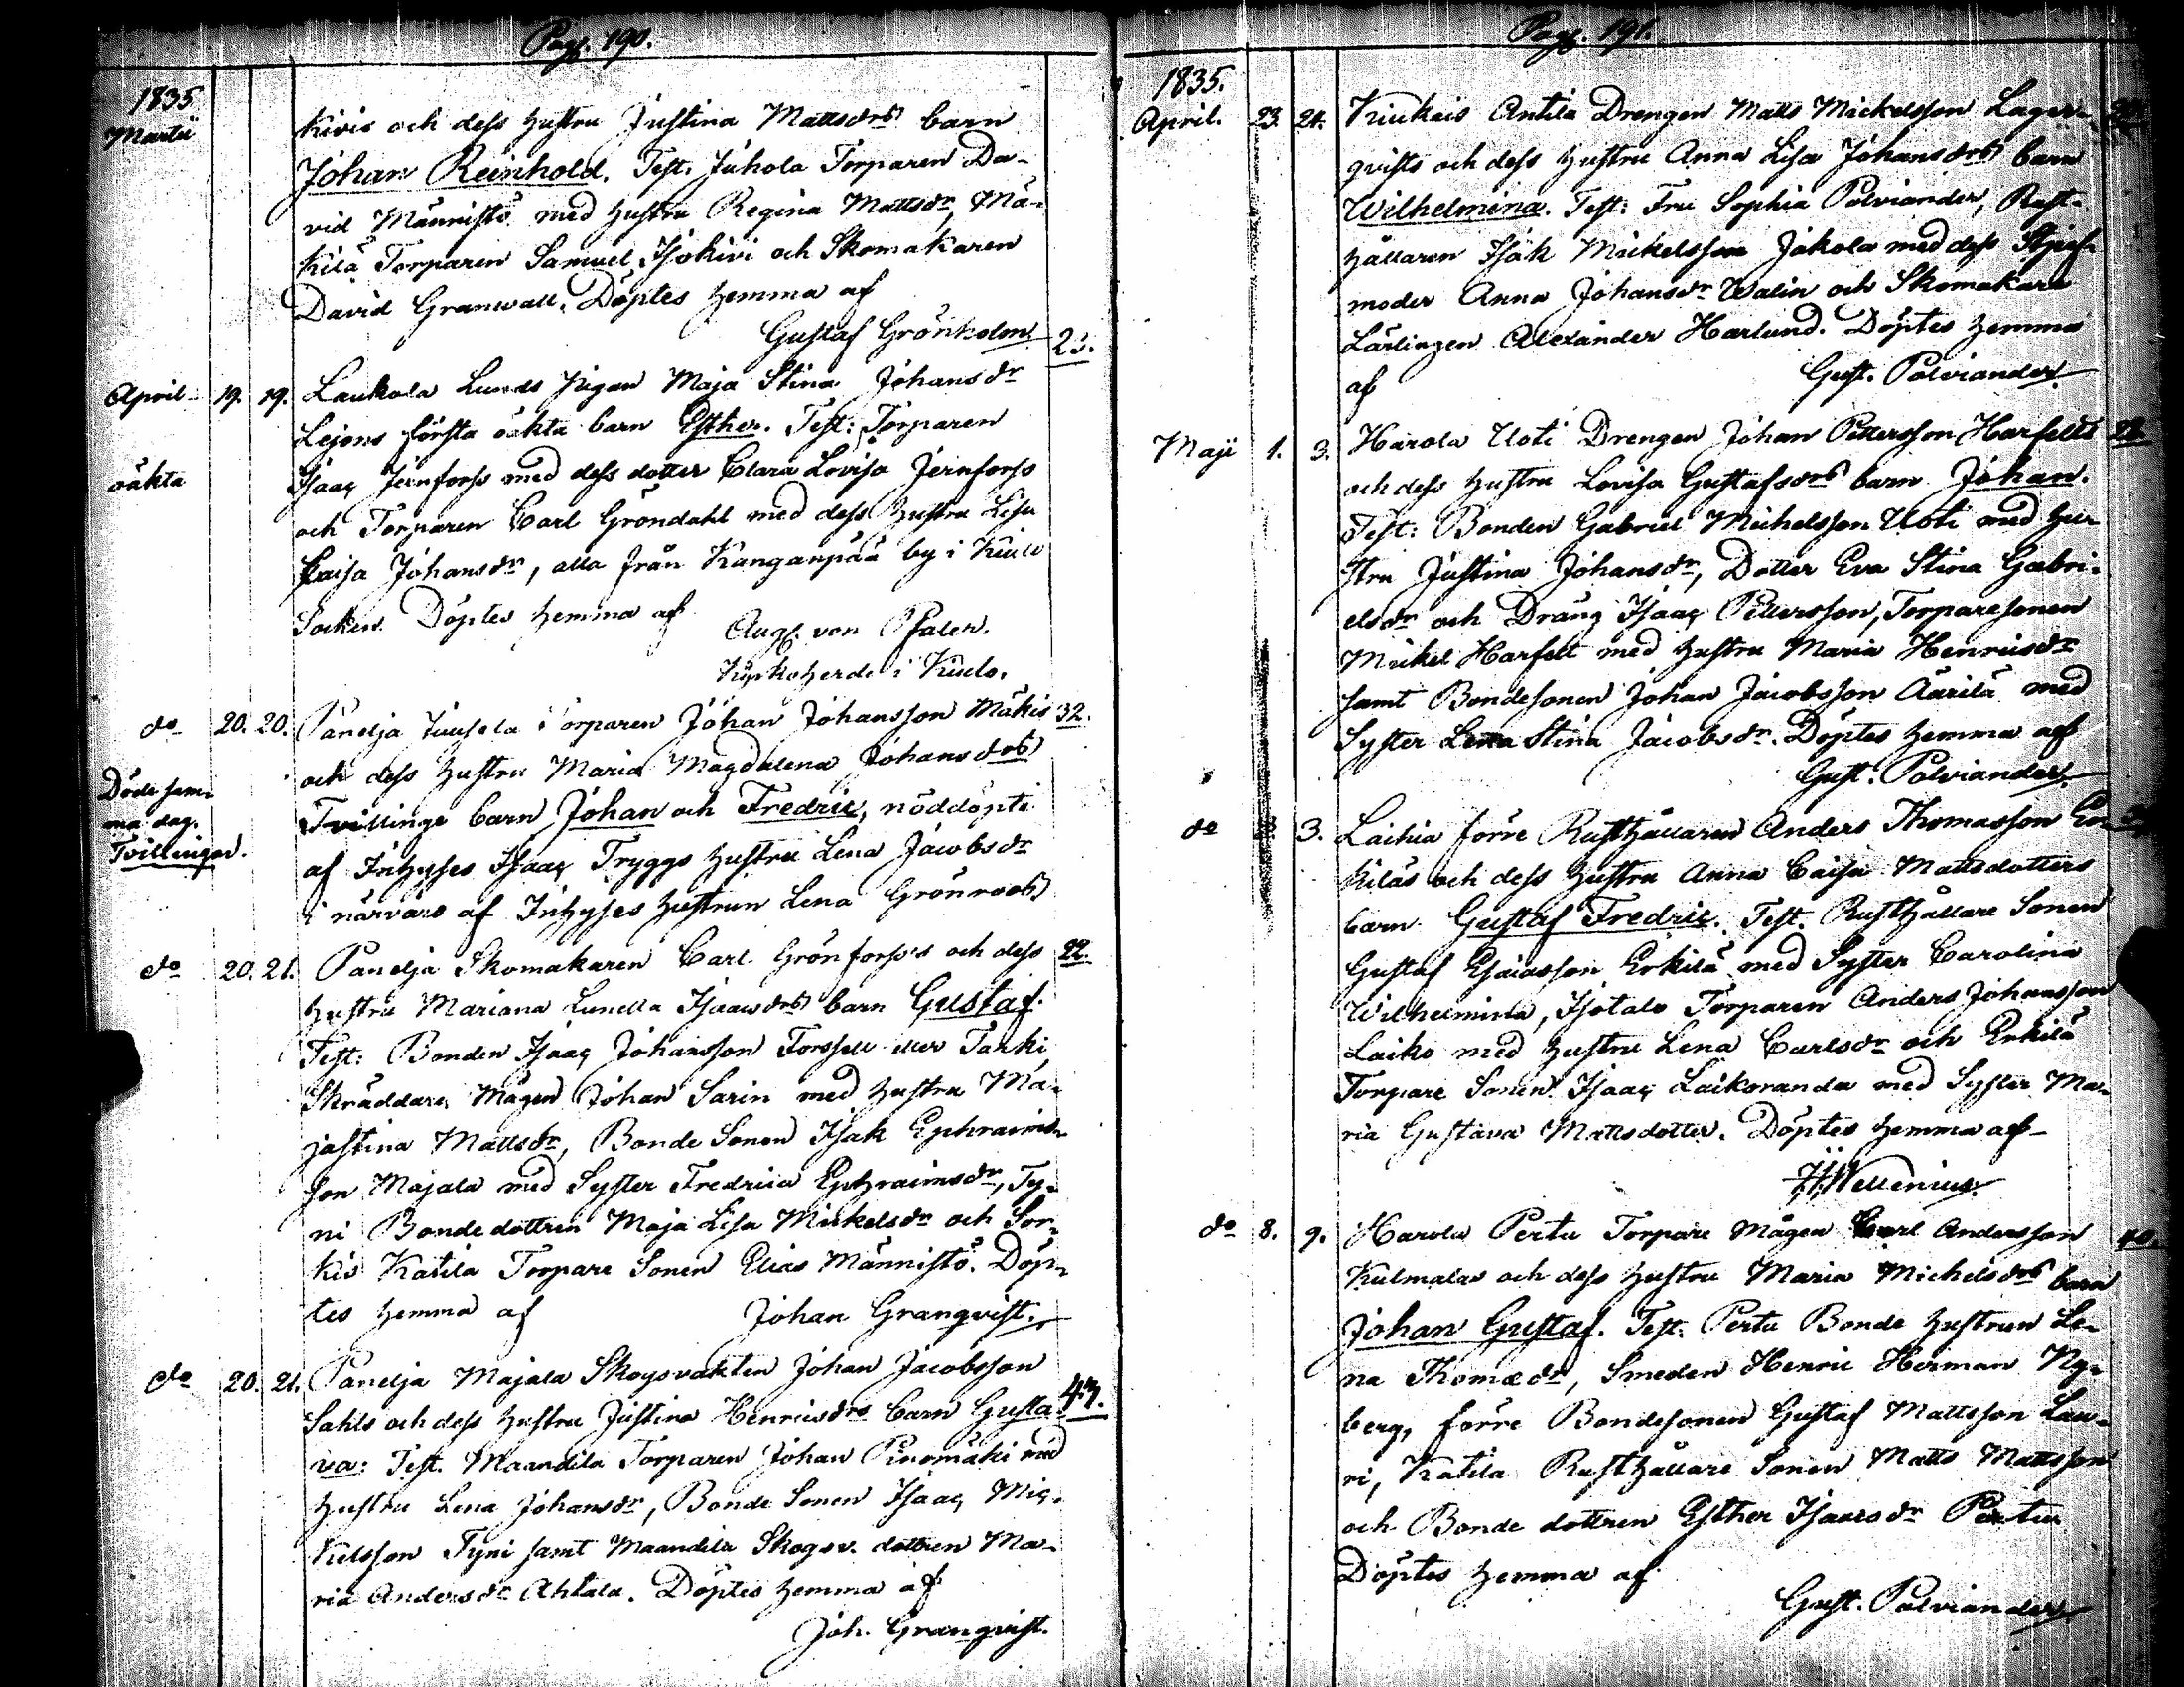 Pag. 190.
1835
Martii
kivis och dess hustru Justina Mattsdrs barn
Johan Reinhold. Test. Juhola Torparen Da-
vid Männistö med hustru Regina Mattsdr, Mä-
kilä Torparen Samuel Isokivi och Skomakaren
David Granwall. Döptes hemma af
Gustaf Grönholm 23.
April 19. 19. Laukola Lunds Pigan Maja Stina Johansdr
Lejons första oäkta barn Esther. Test: Torparen
oäkta
Isaac Jernforss med dess dotter Clara Lovisa Jernforss
och Torparen Carl Gröndahl med dess hustru Lisa
Caisa Johansdr, alla från Kanganpää by i Kiulo
Socken. Döptes hemma af
Aug. von Pfaler.
Kyrkoherde i Kiulo.
do 20. 20. Panelja Torparen Johan Johansson Mäkis 32.
och dess hustru Maria Magdalena Johansdrs
Döde sam-
ma dag.
Tvillingar.
Tvillinge barn Johan och Fredric, nöddöpte
af Inhyses Isaac Tryggs hustru Lena Jacobsdr
i närvaro af Inhyses hustrun Lena Grönroos
do 20. 21. Panelja Skomakaren Carl Grönforss's och dess 22.
hustru Mariana Lunella Isaacsdrs barn Gustaf.
Test: Bonden Isaac Johansson Forssell eller Tarki
Skräddare Mågen Johan Sarin med hustru Ma-
jastina Mattsdr, Bonde Sonen Isak Ephraims-
son Majala med Syster Fredrica Ephraimsdr, Ty-
ni Bonde dottren Maja Lisa Mickelsdr och Sor-
kis Katila Torpare Sonen Elias Männistö. Döp-
tes hemma af Johan Granqvist.
do 20. 21. Panelja Majala Skogsvakten Johan Jacobsson
Sahls och dess hustru Justina Henricsdrs barn Gusta- 43.
va: Test. Maandila Torparen Johan Pinomäki med
hustru Lena Johansdr, Bonde Sonen Isaac Mic-
kelsson Tyni samt Maandila Skogsv. dottren Ma-
ria Andersdr Ahtala. Döptes hemma af
Joh. Granqvist.
Pag. 191.
1835.
April. 23. 24. Kiukais Antila Drengen Matts Mickelsson Lager-
qvists och dess hustru Anna Lisa Johansdrs barn
Wilhelmina. Test: Fru Sophia Polviander, Rust-
hållaren Isak Mickelsson Jakola med dess Stjuf-
moder Anna Johansdr Walin och Skomakare
Lärlingen Alexander Harlund. Döptes hemma
af Gust. Polviander.
Maji 1. 3. Harola Uoti Drengen Johan Pettersson Harfelts
och dess hustru Lovisa Gustafsdrs barn Johan.
Test: Bonden Gabriel Michelsson Uoti med hu-
stru Justina Johansdr, Dotter Eva Stina Gabri-
elsdr och Dräng Isaac Pettersson, Torparesonen
Mickel Harfelt med hustru Maria Henricsdr
samt Bondesonen Johan Jacobsson Äärilä med
Syster Lena Stina Jacobsdr. Döptes hemma af
Gust. Polviander.
do 3. Laihia förre Rusthållaren Anders Thomasson Er-
kiläs och dess hustru Anna Caisa Mattsdotters
barn Gustaf Fredric. Test. Rusthållare Sonen
Gustaf Esaiasson Erkilä med Syster Carolina
Wilhelmina, Isotalo Torparen Anders Johansson
Laiko med hustru Lena Carlsdr och Erkilä
Torpare Sonen Isaac Laikoranda med Syster Ma-
ria Gustava Mattsdotter. Döptes hemma af
Wellenius.
do 8. 9. Harola Pertu Torpare Mågen Carl Andersson 40.
Kulmalas och dess hustru Maria Michelsdrs barn
Johan Gustaf. Test: Pertu Bonde hustrun Le-
na Thomædr, Smeden Henric Herman Ny-
berg, förre Bondesonen Gustaf Mattsson Lau-
ri, Katila Rusthållare Sonen Matts Mattsson
och Bonde dottren Esther Isaacsdr Pertu
Döptes hemma af
Gust. Polviander